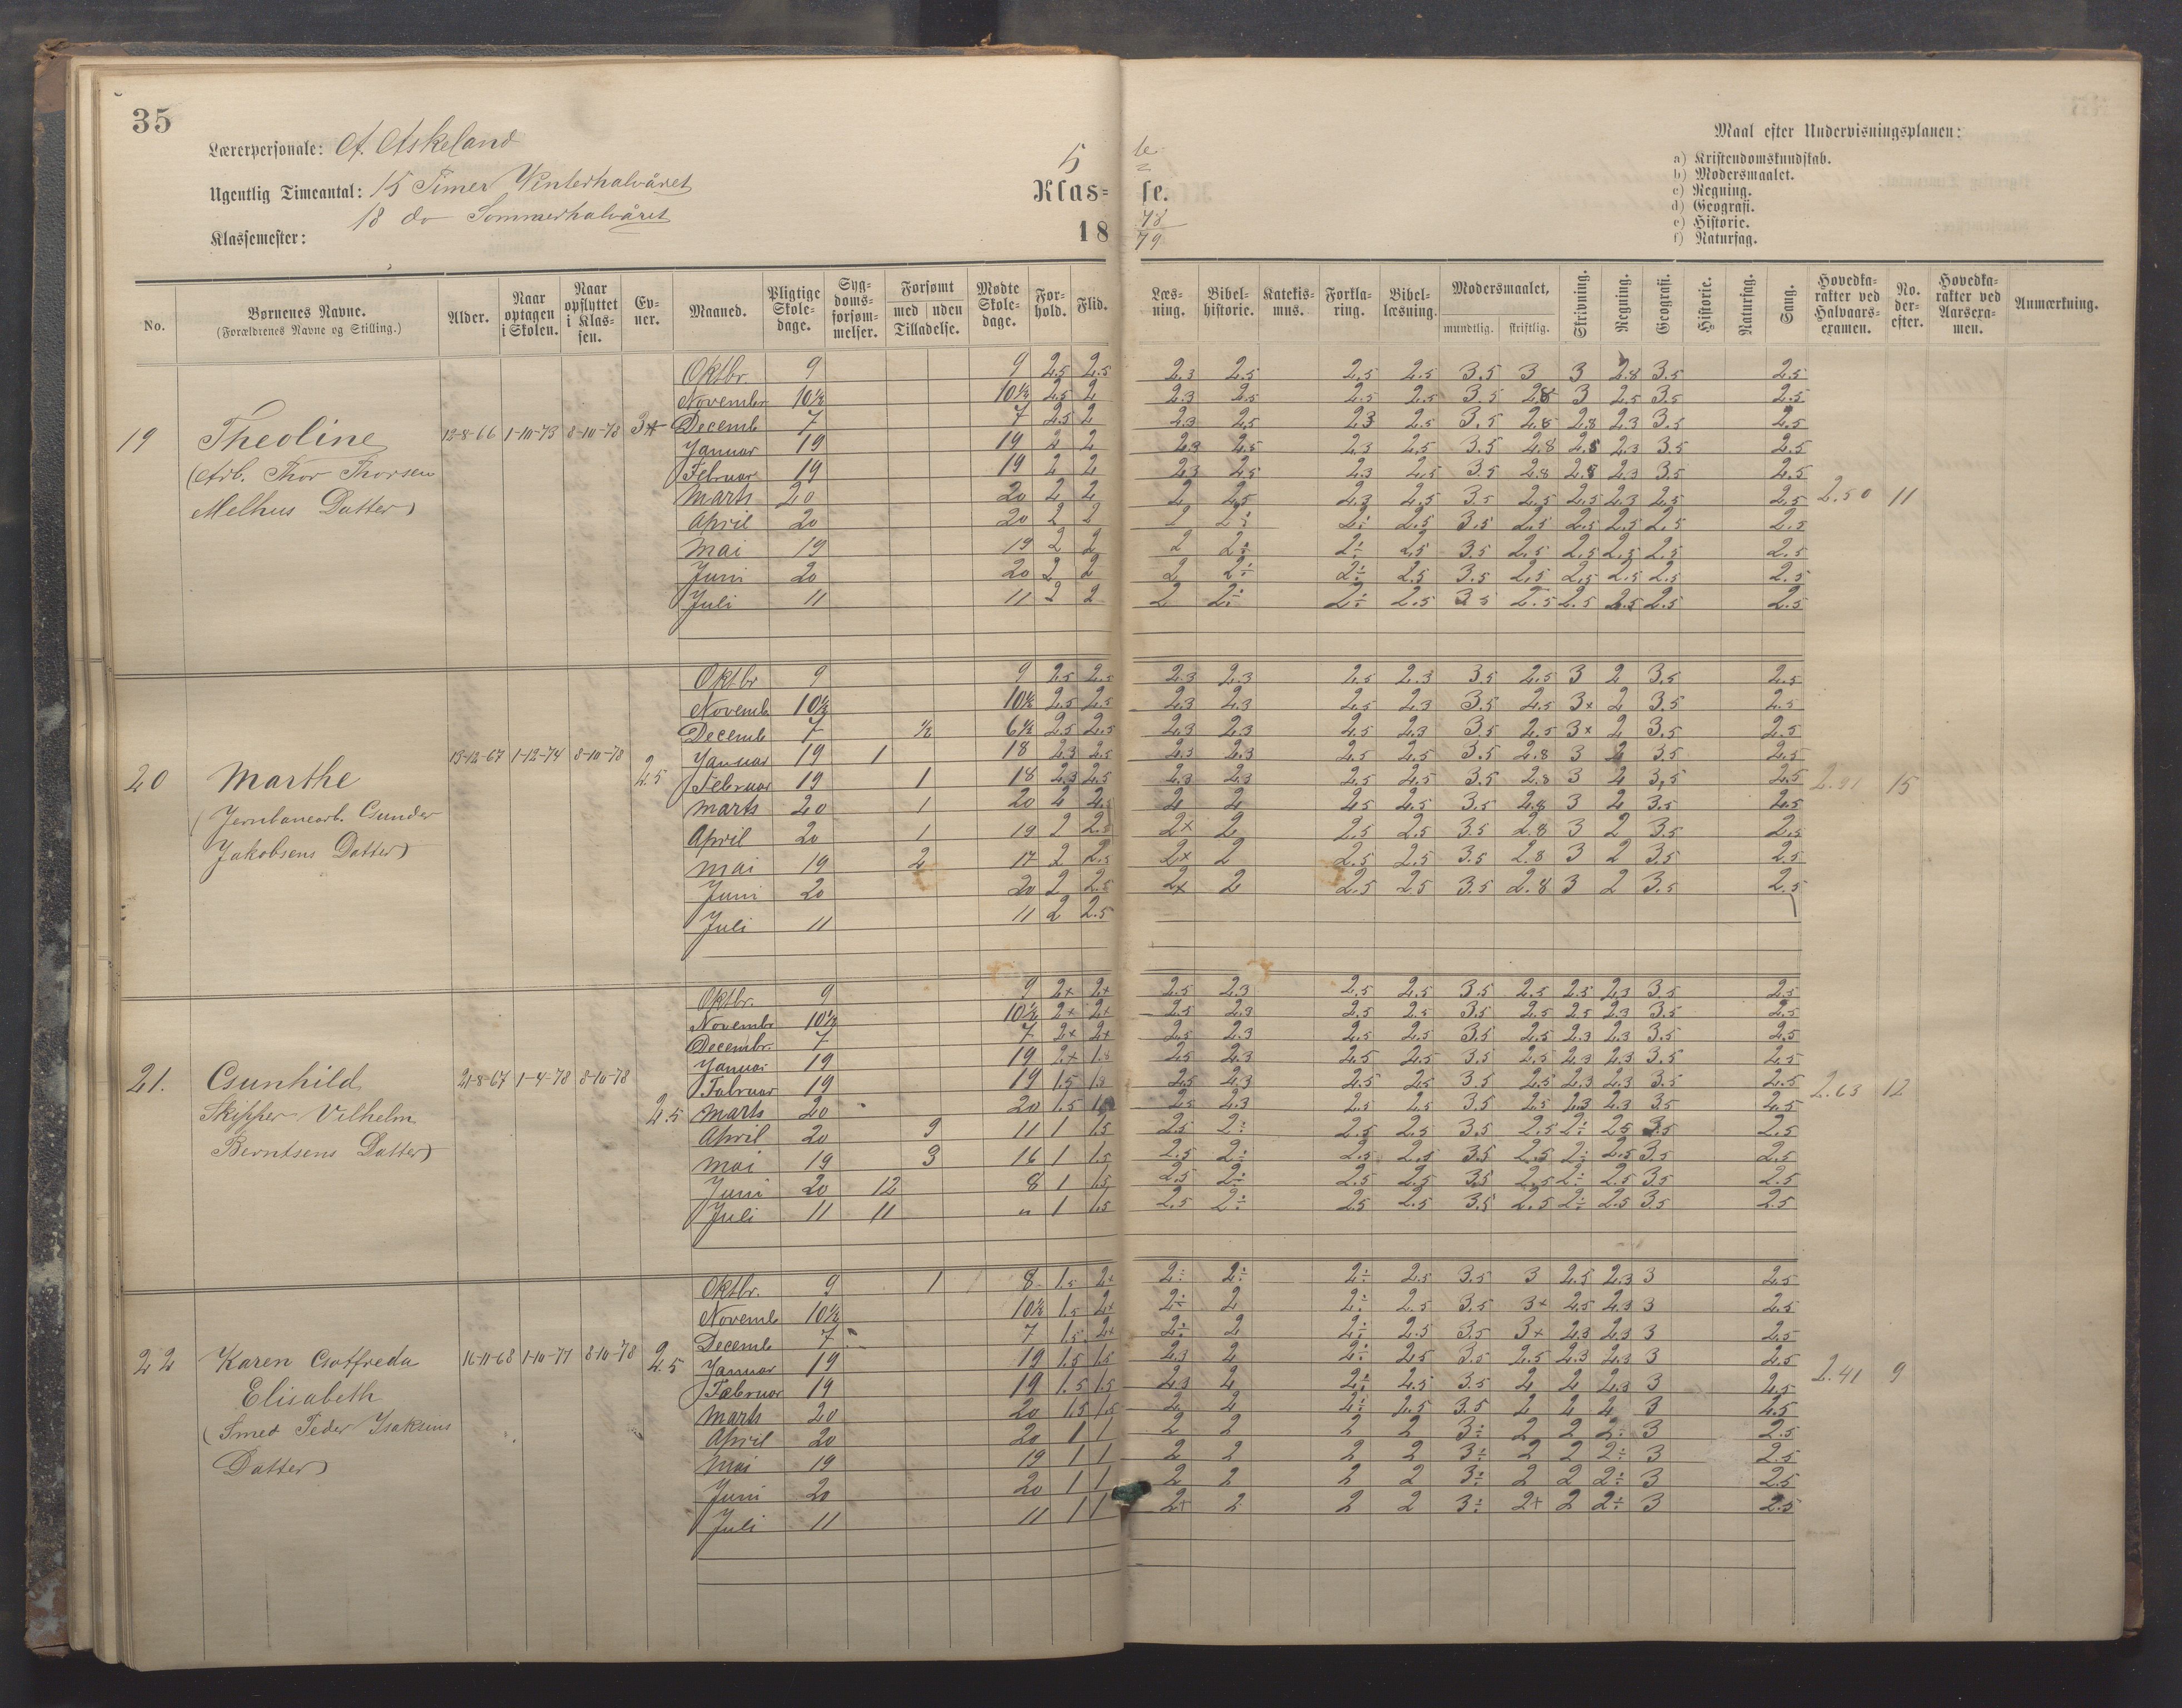 35
Lærerpersonale: A. Askeland
Ugentlig Timeantal: 15 Timer Vinterhalvåret
18 do Sommerhalvåret
Klassemester:
5 te
Klas= se.
18 78/79
Maal efter Undervisningsplanen:
a) Kristendomskundskab.
b) Modersmaalet.
c) Regning.
d) Geografi.
e) Historie.
f) Naturfag.
No. Børnenes Navne. (Forældrenes Navne og Stilling.) Alder. Naar optagen i Skolen. Naar opflyttet i Klas-sen. Ev-ner. Maaned. Pligtige Skole-dage. Syg-doms-forsøm-melser. Forsømt med uden Tilladelse. Mødte Skole-dage. For-hold. Flid. Læs-ning. Bibel-historie. Katekis-mus. Forkla-ring. Bibel-læsning. Modersmaalet, mundtlig. skriftlig. Skrivning. Regning. Geografi. Historie. Naturfag. Sang. Hovedka-rakter ved Halvaars-examen. No. der-efter. Hovedka-rakter ved Aarsexa-men. Anmærkning.
19 Theoline 12-8-66 1-10-73 8-10-78 3+
(Arb. Thor Thorsen
Melhus Datter)
Oktbr. 9 9 2.5 2.5 2.3 2.5 2.5 2.5 3.5 3 3 2.8 3.5 2.5
Novembr 10½ 10½ 2.5 2 2.3 2.5 2.5 2.5 3.5 2.8 3 2.5 3.5 2.5
Decemb 7 7 2.5 2 2.3 2.5 2.3 2.5 3.5 2.8 2.8 2.3 3.5 2.5
Januar 19 19 2 2 2.3 2.5 2.3 2.5 3.5 2.8 2.8 2.3 3.5 2.5
Februar 19 19 2 2 2.3 2.5 2.3 2.5 3.5 2.8 2.8 2.3 3.5 2.5
Marts 20 20 2 2 2 2.5 2.3 2.5 3.5 2.5 2.5 2.3 2.5 2.5 2.50 11
April 20 20 2 2 2 2÷ 2÷ 2.5 3.5 2.5 2.5 2.5 2.5 2.5
Mai 19 19 2 2 2 2÷ 2÷ 2.5 3.5 2.5 2.5 2.5 2.5 2.5
Juni 20 20 2 2 2 2÷ 2÷ 2.5 3.5 2.5 2.5 2.5 2.5 2.5
Juli 11 11 2 2 2 2÷ 2÷ 2.5 3.5 2.5 2.5 2.5 2.5 2.5
20 Marthe 13-12-67 1-12-74 8-10-78 2.5
(Jernbanearb. Gunder
Jakobsens Datter)
Oktbr 9 9 2.5 2.5 2.3 2.3 2.5 2.3 3.5 2.5 3 2 3.5 2.5
Novemb. 10½ 10½ 2.5 2.5 2.3 2.3 2.5 2.3 3.5 2.5 3+ 2 3.5 2.5
Decemb 7 ½ 6½ 2.5 2.5 2.3 2.3 2.5 2.3 3.5 2.5 3+ 2 3.5 2.5
Januar 19 1 18 2.3 2.5 2.3 2.3 2.5 2.5 3.5 2.8 3 2 3.5 2.5
Februar 19 1 18 2.3 2.5 2.3 2.3 2.5 2.5 3.5 2.8 3 2 3.5 2.5 15
Marts 20 1 20 2 2.5 2 2 2.5 2.5 3.5 2.8 3 2 3.5 2.5
April 20 1 19 2 2.5 2+ 2 2.5 2.5 3.5 2.8 3 2 3.5 2.5
Mai 19 2 17 2 2.5 2+ 2 2.5 2.5 3.5 2.8 3 2 3.5 2.5
Juni 20 20 2 2.5 2+ 2 2.5 2.5 3.5 2.8 3 2 3.5 2.5
Juli 11 11 2 2.5
21. Gunhild 21-8-67 1-4-78 8-10-78 2.5
Skipper Vilhelm
Berntsens Datter)
Oktbr. 9 9 2+ 2+ 2.5 2.3 2.5 2.5 3.5 2.5 2.5 2.3 3.5 2.5
Novembr 10½ 10½ 2+ 2+ 2.5 2.3 2.5 2.5 3.5 2.5 2.5 2.3 3.5 2.5
Decembr. 7 7 2+ 2+ 2.5 2.3 2.5 2.5 3.5 2.5 2.3 2.3 3.5 2.5
Januar 19 19 2+ 1.8 2.5 2.3 2.5 2.5 3.5 2.5 2.3 2.3 3.5 2.5
Februar 19 19 1.5 1.8 2.5 2.3 2.5 2.5 3.5 2.5 2.3 2.3 3.5 2.5 2.63 12
Marts 20 20 1.5 2.5 2.3 2.5 2.5 3.5 2.5 2.3 2.3 3.5 2.5
April 20 9 11 1 1.5 2.5 2÷ 2.5 2.5 3.5 2.5 2÷ 2.5 3.5 2.5
Mai 19 3 16 1 1.5 2.5 2÷ 2.5 2.5 3.5 2.5 2÷ 2.5 3.5 2.5
Juni 20 12 8 1 1.5 2.5 2÷ 2.5 2.5 3.5 2.5 2÷ 2.5 3.5 2.5
Juli 11 11 " 1 1.5 2.5 2÷ 2.5 2.5 3.5 2.5 2÷ 2.5 3.5 2.5
22 Karen Gotfreda 16-11-68 1-10-77 8-10-78 2.5
Elisabeth
(Smed Peder Isaksens
Datter)
Oktbr. 9 1 8 1.5 2+ 2÷ 2÷ 2÷ 2.5 3.5 3 2.5 2.3 3 2.5
Novemb 10½ 10½ 1.5 2+ 2÷ 2 2÷ 2.5 3.5 3+ 2.5 2.3 3 2.5
Decemb 7 7 1.5 2+ 2÷ 2 2÷ 2.5 3.5 3+ 2.3 2.3 3 2.5
Januar 19 19 1.5 1.5 2.3 2 2÷ 2.5 3.5 2.5 2.3 2.3 3 2.5
Februar 19 19 1.5 1.5 2.3 2 2÷ 2.5 3.5 2 2 2.3 3 2.5 2.41 9
Marts 20 20 1.5 1.5 2 2 2÷ 2.5 3.5 2 2 2 3 2.5
April 20 20 1 1 2 2 2 2 3÷ 2 2 2÷ 3 2.5
Mai 19 19 1 1 2 2 2 2 3÷ 2 2 2÷ 3 2.5
Juni 20 20 1 1 2 2 2 2 3÷ 2 2 2÷ 3 2.5
Juli 11 11 1 1 2+ 2 2 2 3÷ 2+ 2 2÷ 3 2.5